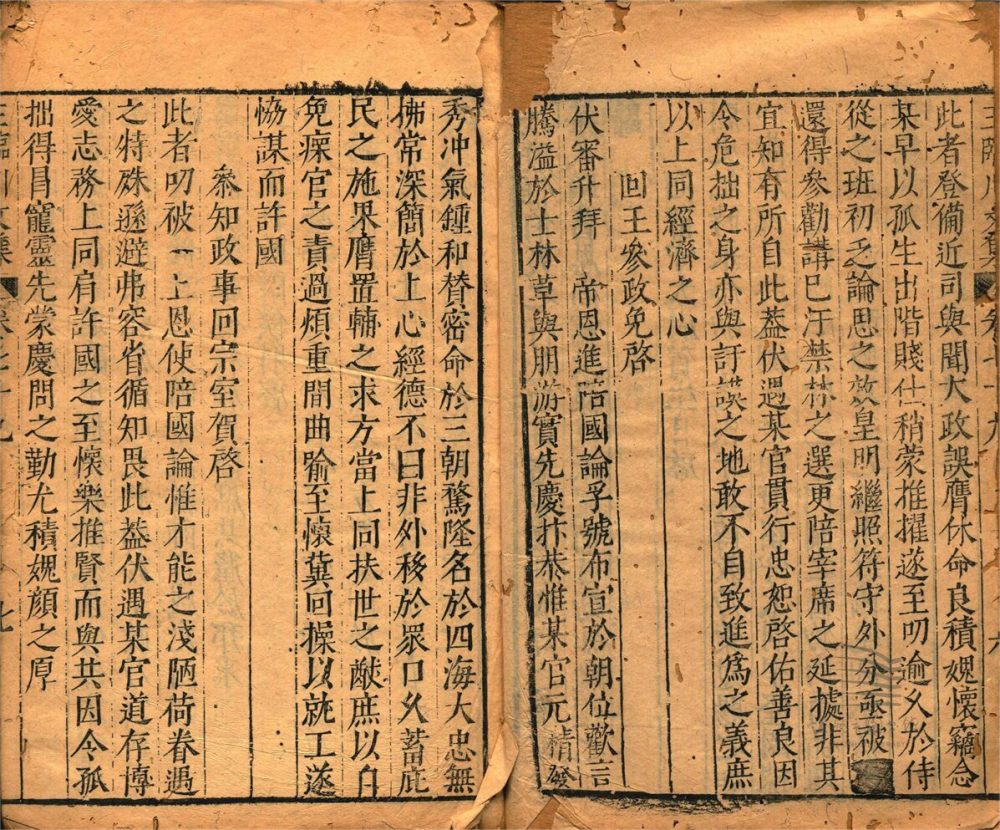 王臨川文集 卷七十九 六
此者登備近司與聞大政誤膺休命良積媿懷竊念
某早以孤生出階賤仕稍蒙推擢遂至叨逾乆於侍
從之班初乏論思之效皇明繼照符守外分亟被
還得參勸講已汙禁林之選更陪宰席之延據非其
宜知有所自此葢伏遇某官貫行忠恕啓佑善良因
令危拙之身亦與訏謨之地敢不自致進爲之義庶
以上同經濟之心
回王參政免啓
伏審升拜 帝恩進陪國論孚號布宣於朝位歡言
騰溢於士林草與朋游實先慶抃恭惟某官元精發
秀冲氣鍾和替密命於三朝驁隆名於四海大忠無
拂常深簡於上心經德不曰非外移於眾口乆蓄庇
民之施果膺置輔之求方當上同扶世之猷庶以自
免瘝官之責過煩重間曲喻至懷冀回操以就工遂
恊謀而許國
叅知政事回宗室賀啓
此者叨被 上恩使陪國論惟才能之淺陋荷眷遇
之特殊遜避弗容省循知畏此葢伏遇某官道存博
愛志務上同肩許國之至懷樂推賢而與共因令孤
拙得冒寵靈先蒙慶問之勤尤積媿顔之厚
王臨川文集 卷七十九 七